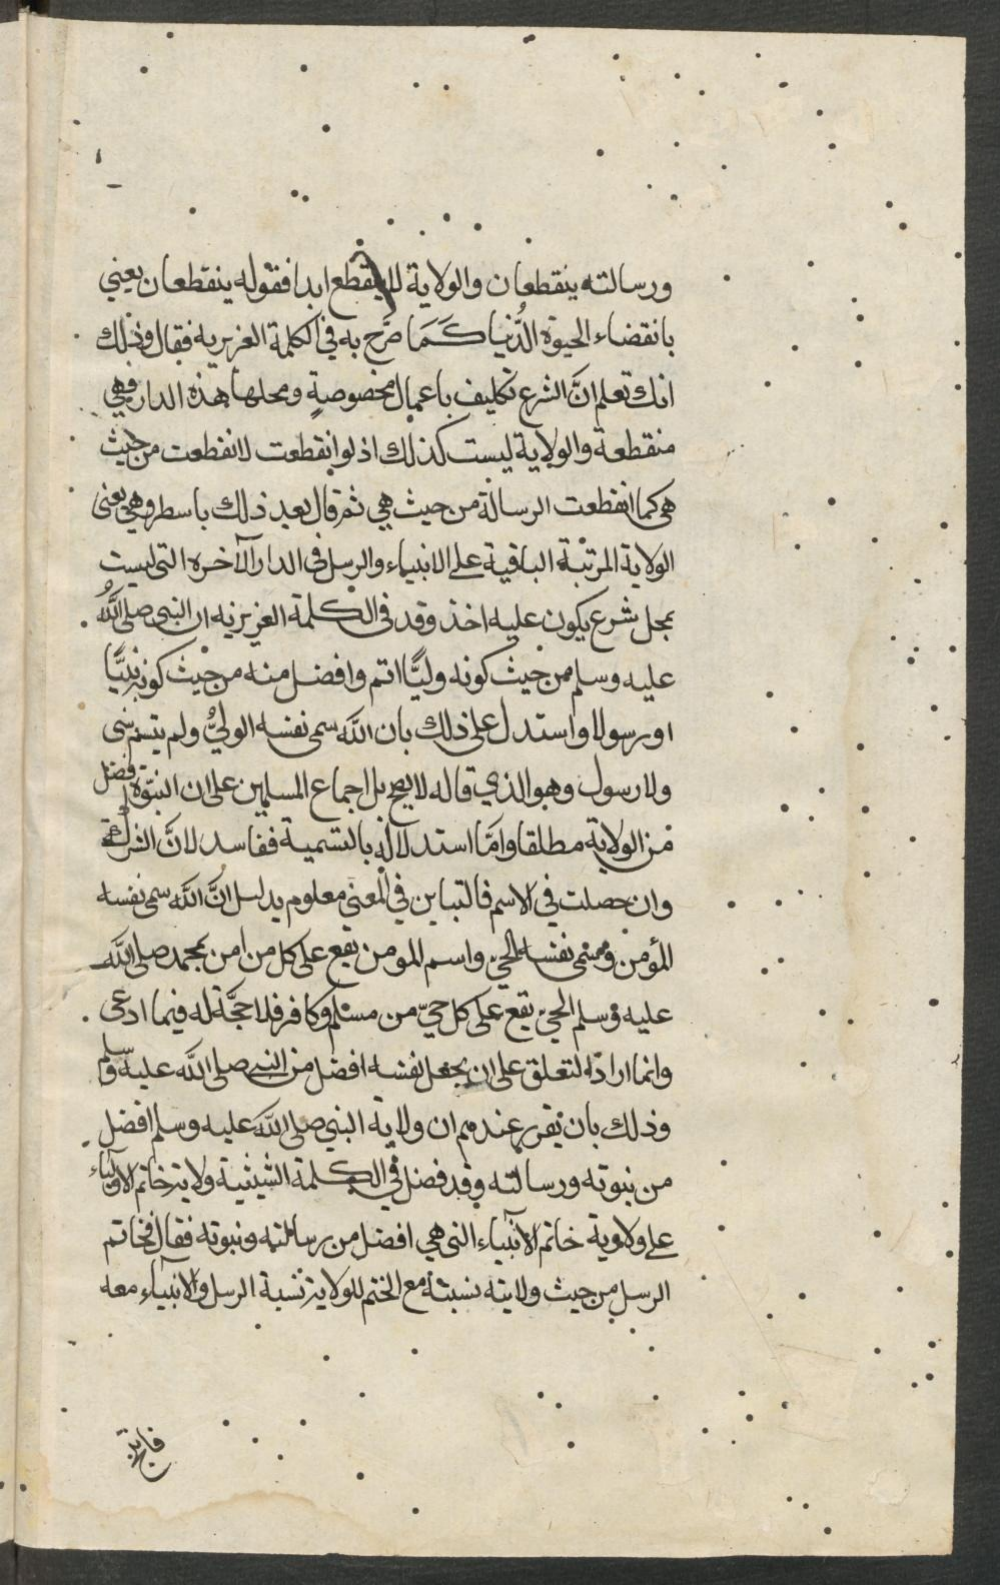 ورسالته ينقطعان والولاية لا تنقطع ابدا فقوله ينقطعان يعني
بانقضاء الحيوة الدُّنيا كَمَا صَرَّح به في الكلمة العزيرية فقال وذلك
انك تعلم انَّ الشرع تكليف باعمال مخصوصةٍ ومحلها هذه الدار فهي
منقطعة والولاية ليست كذلك اذ لو انقطعت لانقطعت من حيث
هي كما انقطعت الرسالة من حيث هي ثم قال بعد ذلك باسطر وهي يعنى
الولاية المرتبة الباقية على الانبياء والرسل في الدار الآخره التي ليست
بمحل شرع يكون عليه اخذ وقد في الكلمة العزيزيه ان النبي صلى اللَّهُ
عليه وسلم من حيث كونه وليًّا اتم وافضل منه من حيث كونه نبيًّا
او رسولا واستدل على ذلك بان اللَّه سمى نفسه الوليُّ ولم يتسم بنبى
ولا رسول وهو الذي قاله لا يصح بل اجماع المسلمين على ان النبوّة افضل
من الولاية مطلقا وامَّا استدلاله بالتسمية ففاسد لانَّ الشركة
وان حصلت في الاسم فالتباين في المعنى معلوم بدليل انَّ اللَّه سمى نفسه
المؤمن وسمى نفسه الحيّ واسم المومن يقع على كل من امن بمحمد صلى اللَّه
عليه وسلم الحيّ يقع على كل حيّ من مسلم وكافر فلا حجَّة له فيما ادعى
وانما اراد التعلق على ان يجعل نفسه افضل من النبي صلى اللَّه عليه وسلم
وذلك بان يقرر عندهم ان ولاية النبي صلى اللَّه عليه وسلم افضل
من نبوته ورسالته وقد فضل في الكلمة الشيثية ولاية خاتم الاولياء
على ولاوية خاتم الانبياء التى هي افضل من رسالته ونبوته فقال فخاتم
الرسل من حيث ولايته نسبته مع الختم للولاية نسبة الرسل والانبياء معه